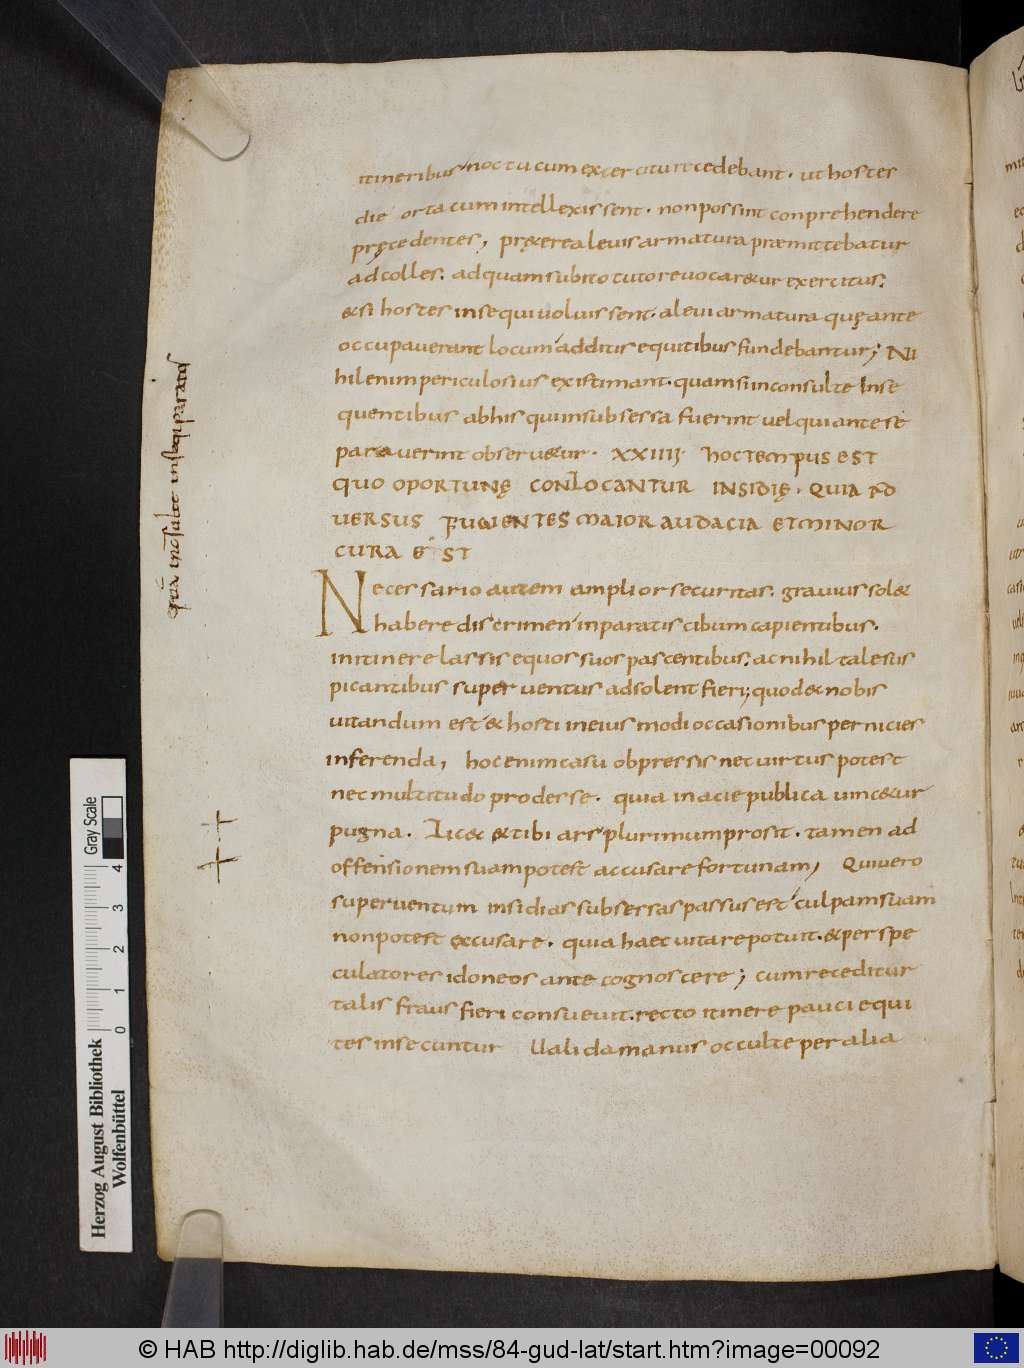 itineribus noctu cum excercitu recedebant · ut hostes
die orta cum intellexissent · non possint conprehendere
pręcedentes, pręterea leuis armatura præmittebatur
ad colles: ad quam subito tuto reuocaretur exercitus:
& si hostes insequi uoluissent · a leui armatura quę ante
occupauerant locum additis equitibus fundebantur; Ni
hil enim periculosius existimant · quam si inconsulte Inse
quentibus ab his qui in subsessa fuerint uel qui ante se
parauerint obseruetur · XXIIII · HOC TEMPUS EST
QUO OPORTUNĘ CONLOCANTUR INSIDIĘ · QUIA AD
UERSUS FUGIENTES MAIOR AUDACIA ET MINOR
CURA EST
Necessario autem amplior securitas · grauius sol&
habere discrimen inparatis cibum capientibus ·
in itinere lassis equos suos pascentibus: ac nihil tale sus
picantibus superuentus adsolent fieri; quod & nobis
uitandum est & hosti in eius modi occasionibus pernicies
inferenda, hoc enim casu obpressis nec uirtus potest
nec multitudo prodesse · quia in acie publica uinc&ur
pugna · Lic& & tibi ars plurimum prosit · tamen ad
offensionem suam potest accusare fortunam, Qui uero
superuentum insidias subsessas passus est culpam suam
non potest excusare · quia haec uitare potuit · & per spe
culatores idoneos ante cognoscere; cum receditur
talis fraus fieri consueuit · recto itinere pauci equi
tes insecuntur Ualida manus occulte per alia
Herzog August Bibliothek
Wolfenbüttel
0 1 2 3 4
Gray Scale
© HAB http://diglib.hab.de/mss/84-gud-lat/start.htm?image=00092